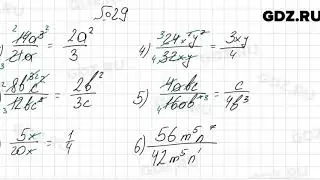 GDZ.RU
№29
1) 14a³/21a = 2a²/3
4) 24xy²/32xy = 3y/4
8b³c/12bc² = 2b²/3c
5) 4abc/16ab⁴ = c/4b³
5x/20x = 1/4
6) 56m⁵n⁷/42m⁵n¹